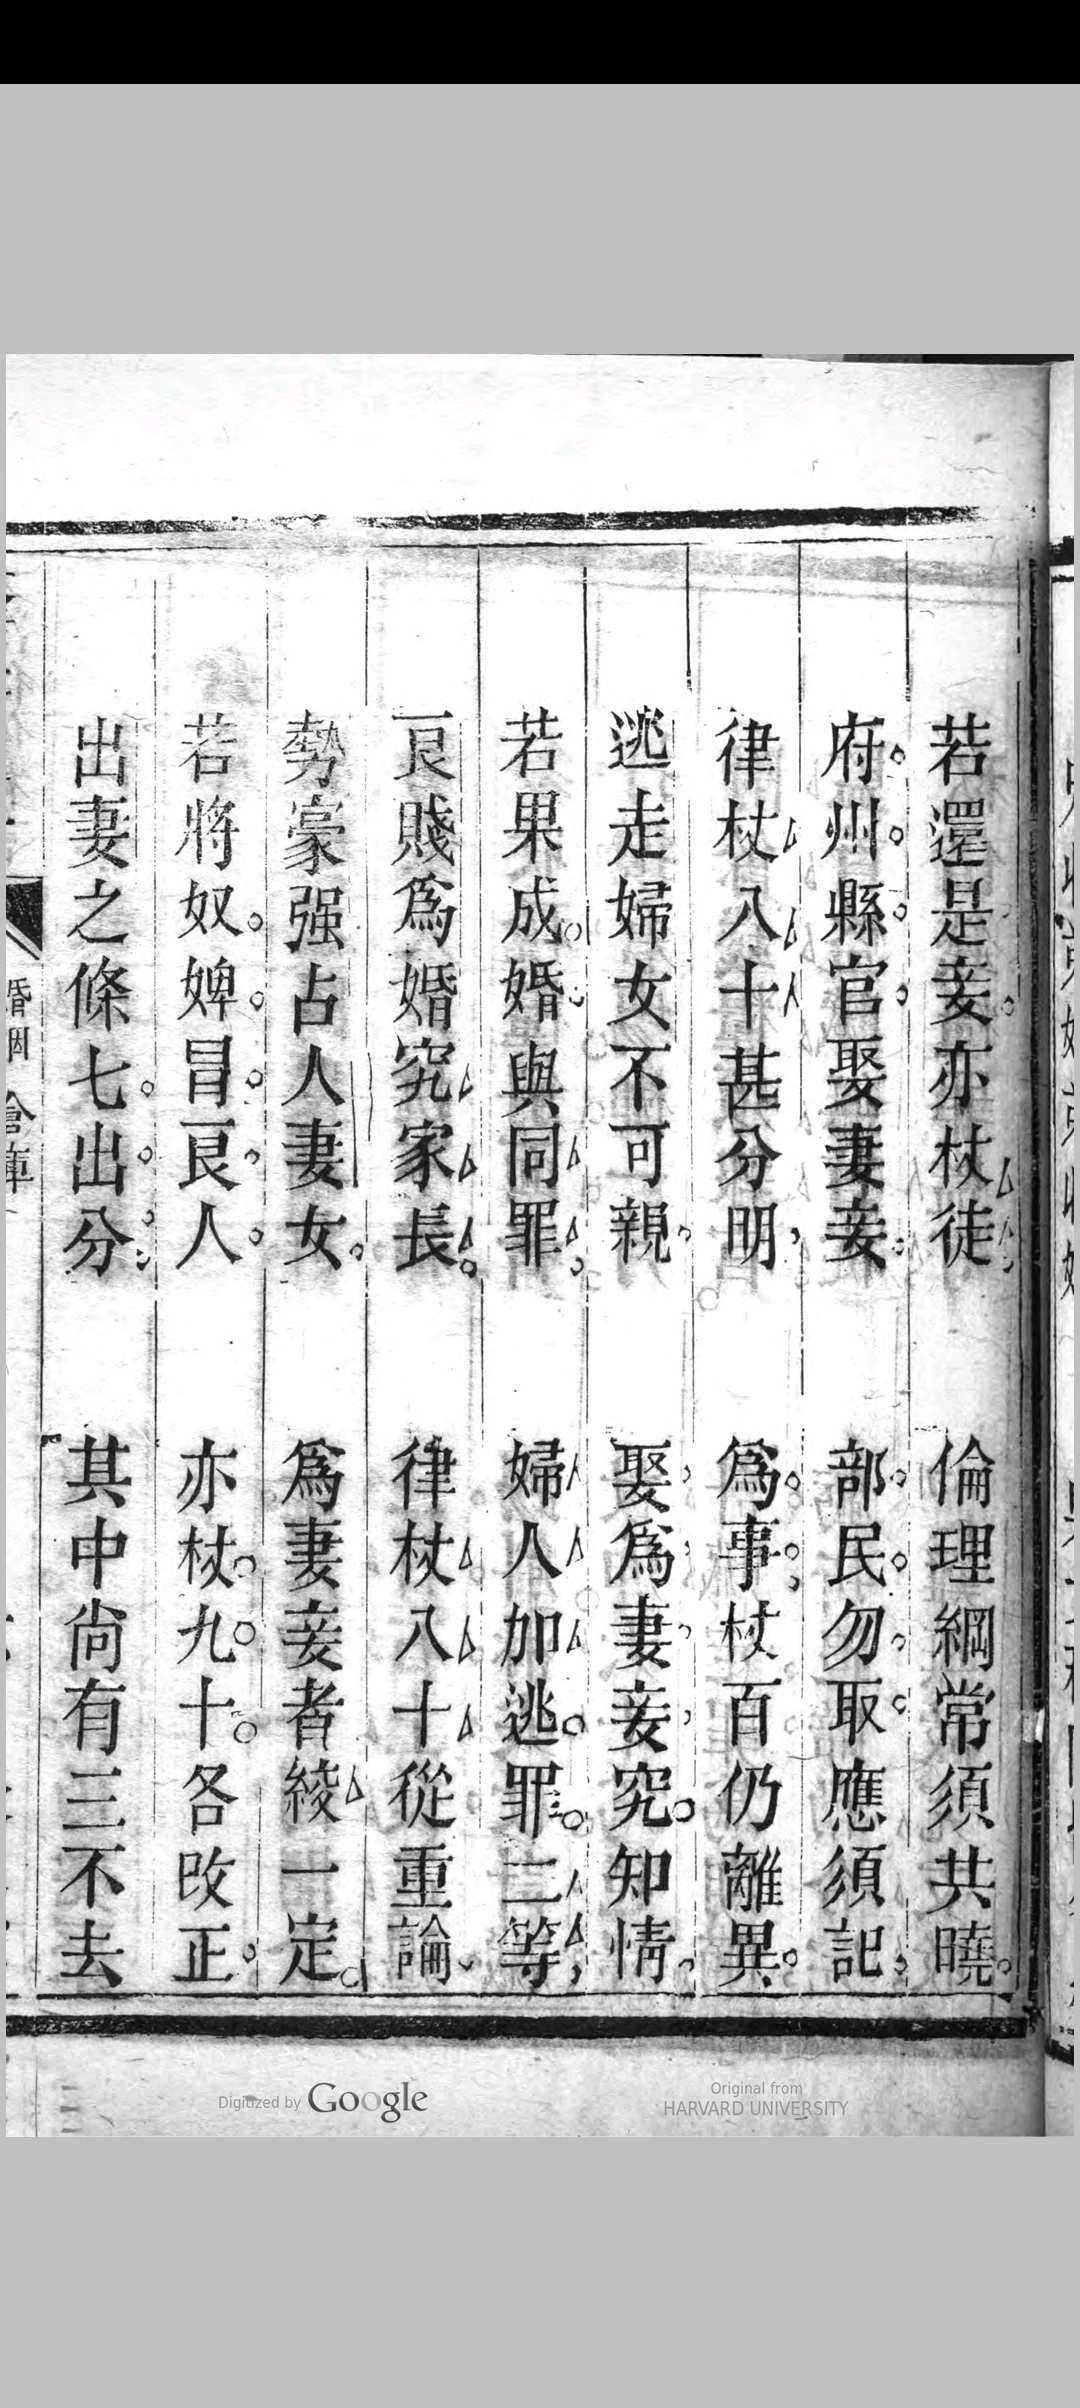 若還是妾亦杖徒 倫理綱常須共曉
府州縣官娶妻妾 部民勿取應須記
律杖八十甚分明 爲事杖百仍離異
逃走婦女不可親 娶爲妻妾究知情
若果成婚與同罪 婦人加逃罪二等
良賤爲婚究家長 律杖八十從重論
勢豪强占人妻女 爲妻妾者綾一定
若將奴婢冒良人 亦杖九十各改正
出妻之條七出分 其中尙有三不去
婚姻 倉庫
Digitized by Google
Original from
HARVARD UNIVERSITY